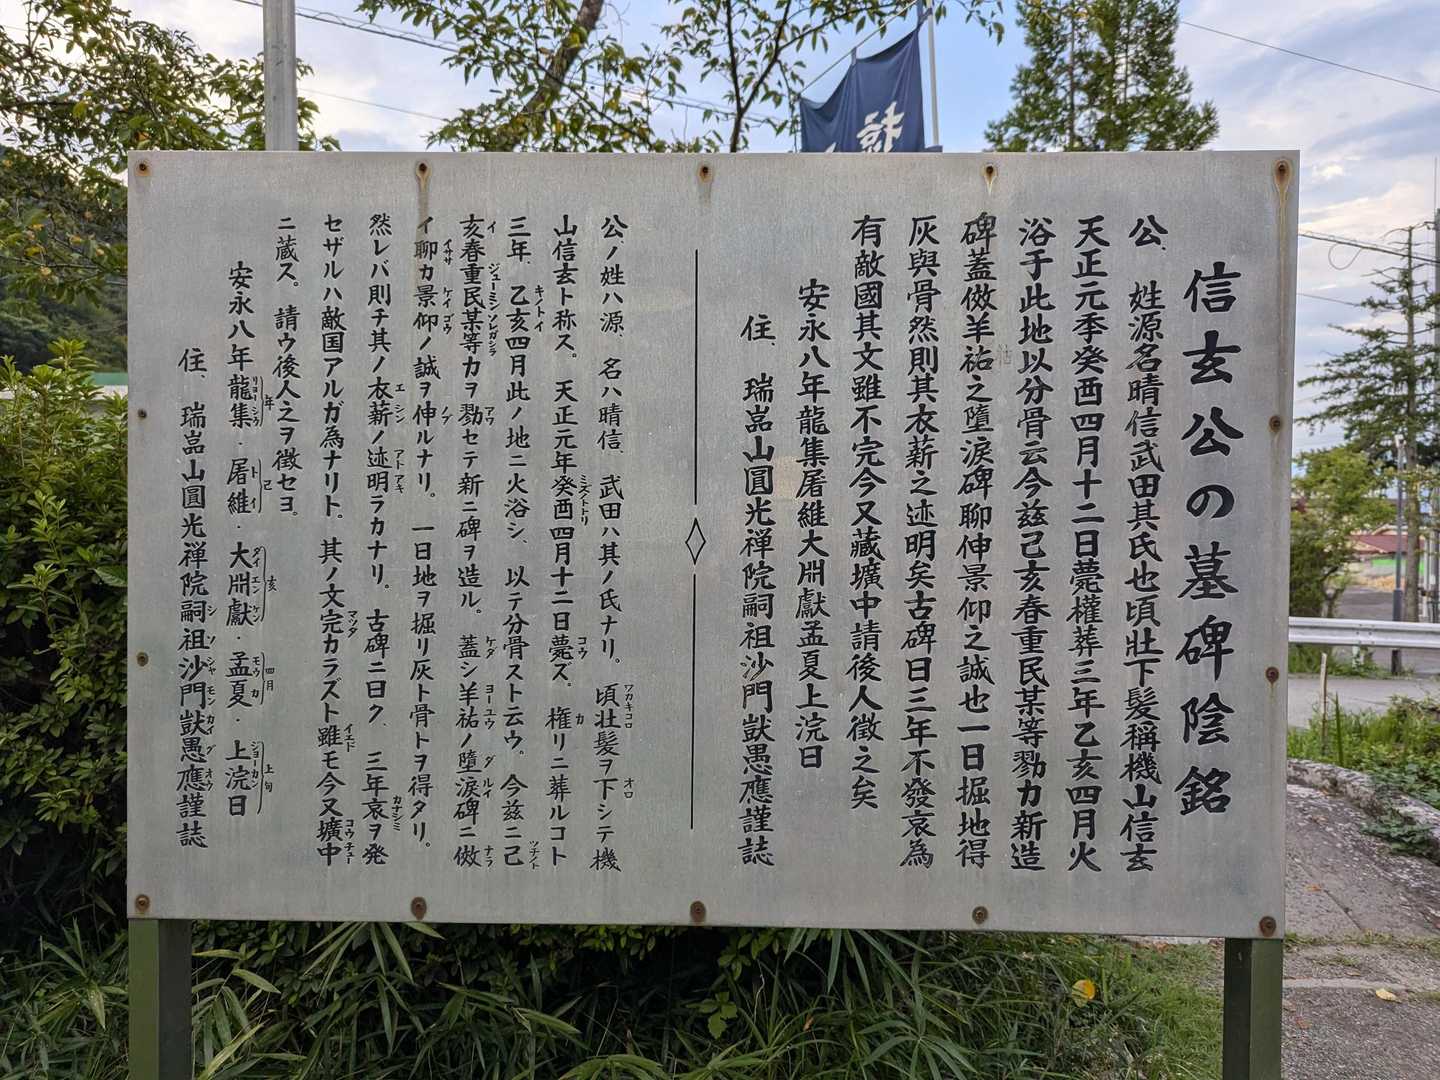 信玄公の墓碑陰銘
公、姓源名晴信武田其氏也頃壮下髪稱機山信玄
天正元季癸酉四月十二日薨權葬三年乙亥四月火
浴于此地以分骨云今玆己亥春重民某等勠力新造
碑蓋倣羊祐之墮淚碑聊伸景仰之誠也一日掘地得
灰與骨然則其衣薪之迹明矣古碑日三年不發哀為
有敵國其文雖不完今又藏壙中請後人徴之矣
安永八年龍集屠維大淵獻孟夏上浣日
住、瑞嵓山圓光禅院嗣祖沙門獃愚應謹誌
公ノ姓ハ源、名ハ晴信、武田ハ其ノ氏ナリ。頃壮髪ヲ下シテ機
山信玄ト称ス。天正元年癸酉四月十二日薨ズ。権リニ葬ルコト
三年、乙亥四月此ノ地ニ火浴シ、以テ分骨スト云ウ。今玆ニ己
亥春重民某等力ヲ勠セテ新ニ碑ヲ造ル。蓋シ羊祐ノ墮淚碑ニ倣
イ聊カ景仰ノ誠ヲ伸ルナリ。一日地ヲ掘リ灰ト骨トヲ得タリ。
然レバ則チ其ノ衣薪ノ迹明ラカナリ。古碑ニ日ク、三年哀ヲ発
セザルハ敵国アルガ為ナリト。其ノ文完カラズト雖モ今又壙中
ニ蔵ス。請ウ後人之ヲ徴セヨ。
安永八年龍集・屠維・大淵獻・孟夏・上浣日
住、瑞嵓山圓光禅院嗣祖沙門獃愚應謹誌